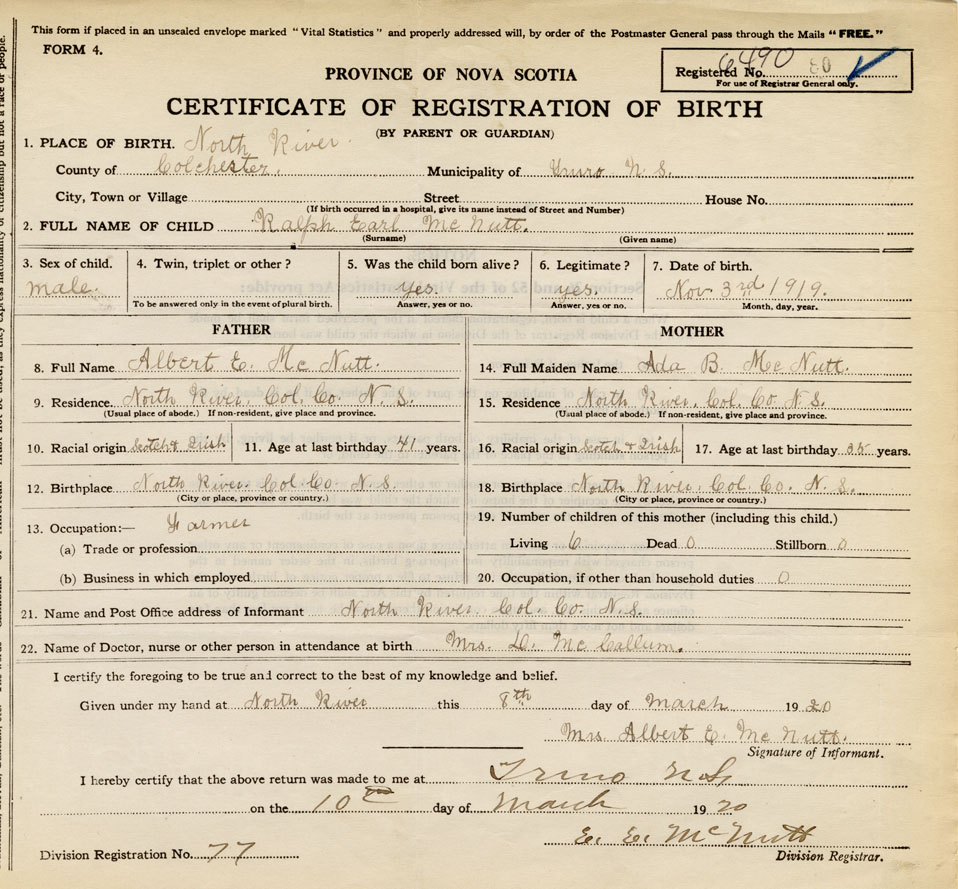 This form if placed in an unsealed envelope marked "Vital Statistics" and properly addressed will, by order of the Postmaster General pass through the Mails "FREE."
FORM 4.
PROVINCE OF NOVA SCOTIA
Registered No. 6490 80
For use of Registrar General only.
CERTIFICATE OF REGISTRATION OF BIRTH
(BY PARENT OR GUARDIAN)
1. PLACE OF BIRTH. North River.
County of Colchester. Municipality of Truro N. S.
City, Town or Village Street House No.
(If birth occurred in a hospital, give its name instead of Street and Number)
2. FULL NAME OF CHILD Ralph Earl Mc Nutt.
(Surname) (Given name)
3. Sex of child. 4. Twin, triplet or other? 5. Was the child born alive? 6. Legitimate? 7. Date of birth.
male. yes. yes. Nov 3rd 1919.
To be answered only in the event of plural birth. Answer, yes or no. Answer, yes or no. Month, day, year.
FATHER MOTHER
8. Full Name Albert E. Mc Nutt. 14. Full Maiden Name Ada B. Mc Nutt.
9. Residence. North River. Col. Co. N. S. 15. Residence North River. Col. Co. N. S.
(Usual place of abode.) If non-resident, give place and province. (Usual place of abode.) If non-resident, give place and province.
10. Racial origin Scotch & Irish 11. Age at last birthday 41 years. 16. Racial origin Scotch & Irish 17. Age at last birthday 35 years.
12. Birthplace North River. Col. Co. N. S. 18. Birthplace North River. Col. Co. N. S.
(City or place, province or country.) (City or place, province or country.)
13. Occupation:— Farmer 19. Number of children of this mother (including this child.)
(a) Trade or profession Living 6 Dead 0 Stillborn 0
(b) Business in which employed 20. Occupation, if other than household duties 0
21. Name and Post Office address of Informant North River Col. Co. N. S.
22. Name of Doctor, nurse or other person in attendance at birth Mrs. D. Mc Callum.
I certify the foregoing to be true and correct to the best of my knowledge and belief.
Given under my hand at North River this 8th day of March 1920
Mrs. Albert E. Mc Nutt.
Signature of Informant.
I hereby certify that the above return was made to me at Truro N S
on the 10th day of March 1920
E. E. McNutt
Division Registration No. 77 Division Registrar.